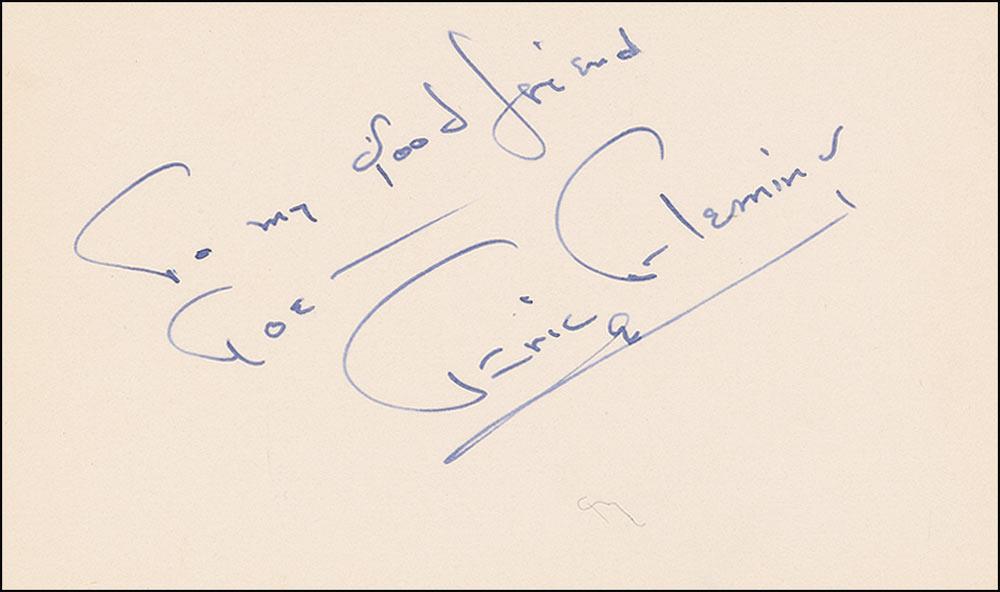 To my good friend
Joe
Eric Fleming